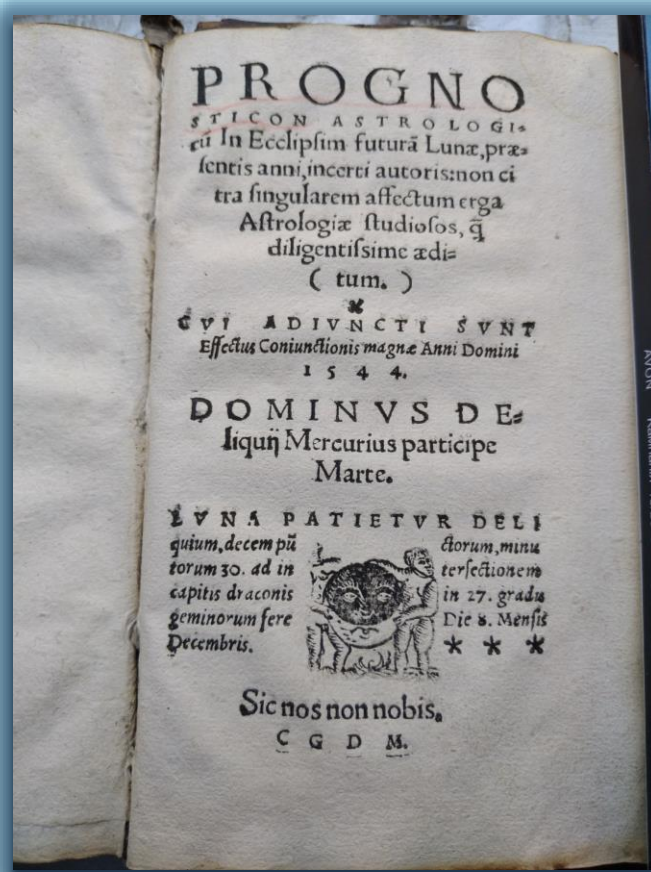 PROGNO
STICON ASTROLOGI⸗
cū In Ecclipſim futurā Lunæ, præ⸗
ſentis anni, incerti autoris: non ci
tra ſingularem affectum erga
Aſtrologiæ ſtudioſos, q̄
diligentiſsime ædi⸗
( tum. )
CVI ADIVNCTI SVNT
Effectus Coniunctionis magnæ Anni Domini
1 5 4 4.
DOMINVS DE⸗
liquij Mercurius participe
Marte.
LVNA PATIETVR DELI
quium, decem pū ctorum, minu
torum 30. ad in terſectionem
capitis draconis in 27. gradu
geminorum fere Die 8. Menſis
Decembris. * * *
Sic nos non nobis.
C G D M.